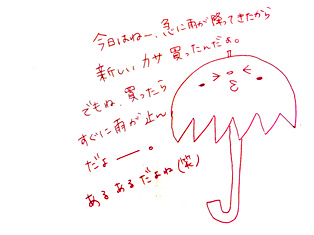 今日はねー、急に雨が降ってきたから
新しいカサ買ったんだよ。
でもね、買ったら
すぐに雨が止ん
だよ――。
あるあるだよね(笑)